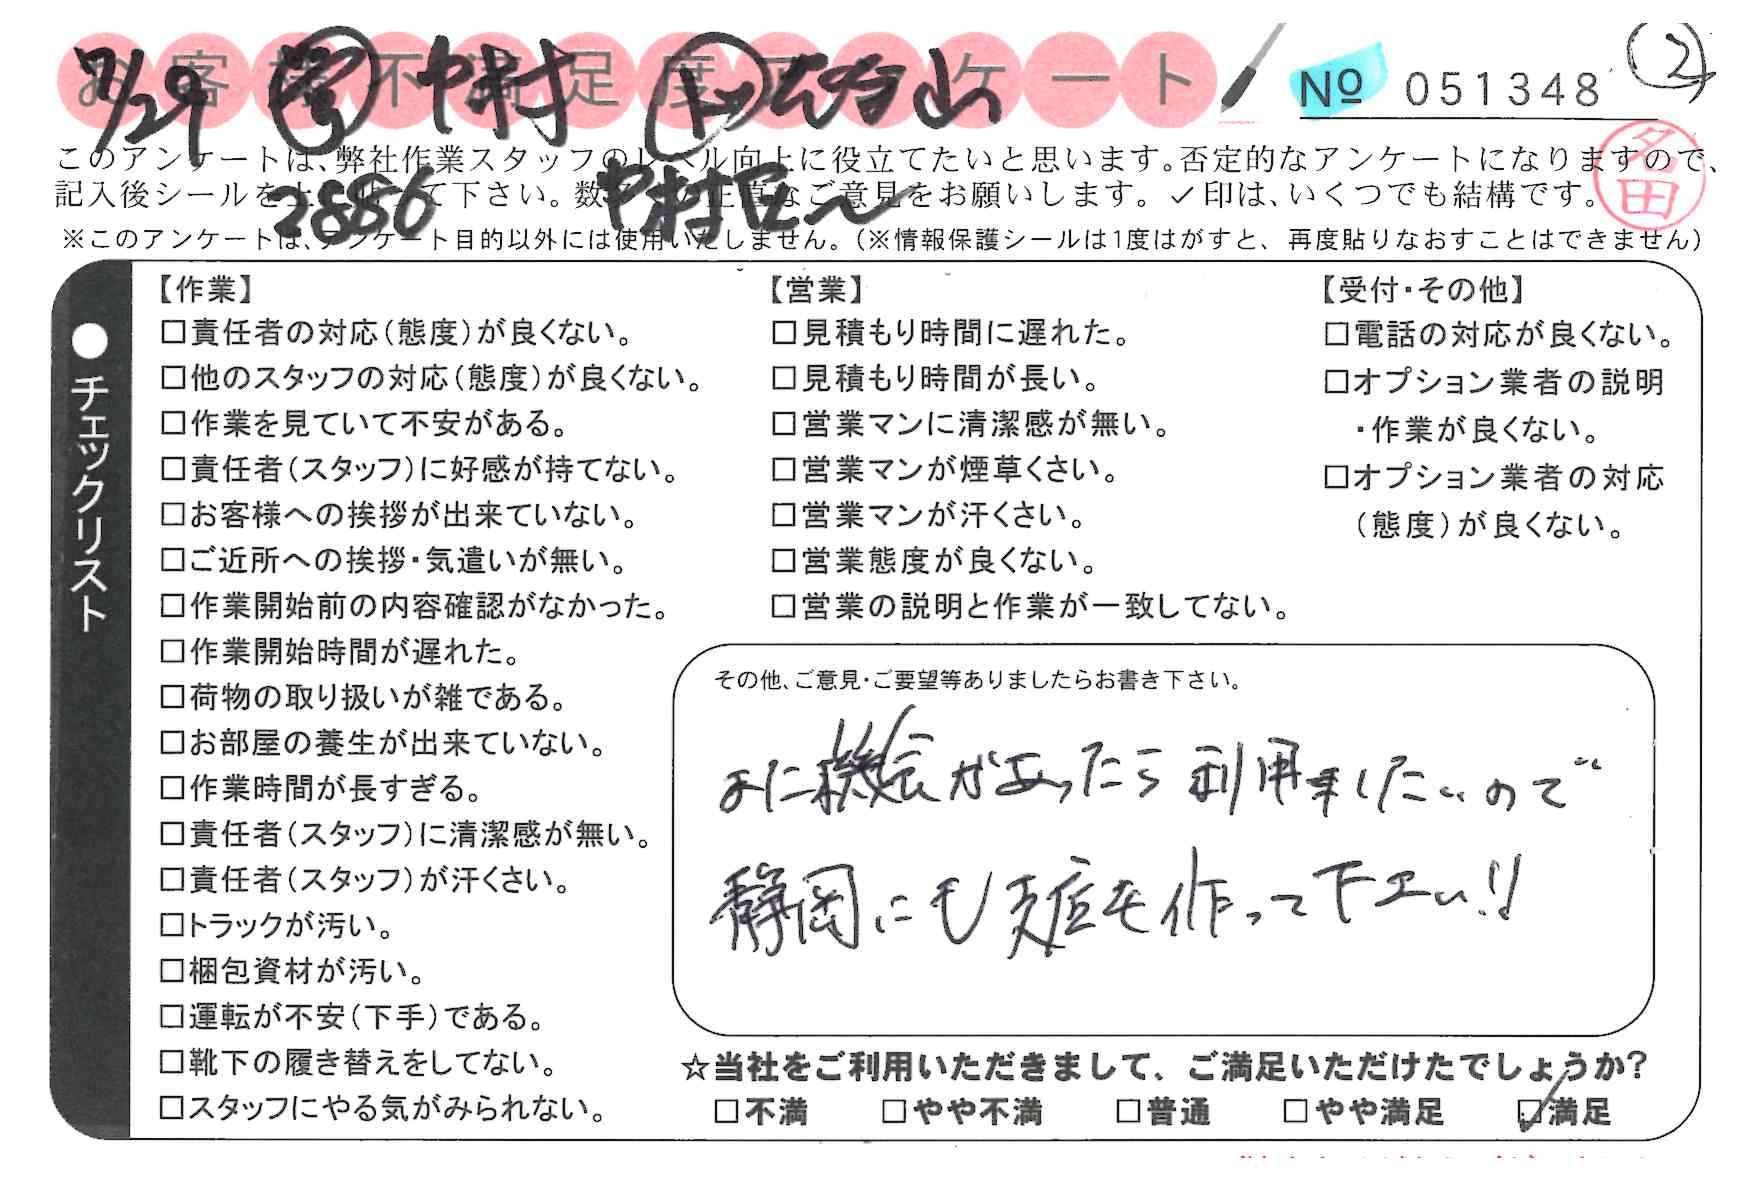 お客様不満足度アンケート
7/29 中村
№ 051348 ②
名田
このアンケートは、弊社作業スタッフのレベル向上に役立てたいと思います。否定的なアンケートになりますので、
記入後シールを上に貼って下さい。数多くの正直なご意見をお願いします。✓印は、いくつでも結構です。
2856 中村区へ
※このアンケートは、アンケート目的以外には使用いたしません。(※情報保護シールは1度はがすと、再度貼りなおすことはできません)
●チェックリスト
【作業】
□責任者の対応(態度)が良くない。
□他のスタッフの対応(態度)が良くない。
□作業を見ていて不安がある。
□責任者(スタッフ)に好感が持てない。
□お客様への挨拶が出来ていない。
□ご近所への挨拶・気遣いが無い。
□作業開始前の内容確認がなかった。
□作業開始時間が遅れた。
□荷物の取り扱いが雑である。
□お部屋の養生が出来ていない。
□作業時間が長すぎる。
□責任者(スタッフ)に清潔感が無い。
□責任者(スタッフ)が汗くさい。
□トラックが汚い。
□梱包資材が汚い。
□運転が不安(下手)である。
□靴下の履き替えをしてない。
□スタッフにやる気がみられない。
【営業】
□見積もり時間に遅れた。
□見積もり時間が長い。
□営業マンに清潔感が無い。
□営業マンが煙草くさい。
□営業マンが汗くさい。
□営業態度が良くない。
□営業の説明と作業が一致してない。
【受付・その他】
□電話の対応が良くない。
□オプション業者の説明
・作業が良くない。
□オプション業者の対応
(態度)が良くない。
その他、ご意見・ご要望等ありましたらお書き下さい。
また機会があったら利用したいので
静岡にも支店を作って下さい!!
☆当社をご利用いただきまして、ご満足いただけたでしょうか?
□不満 □やや不満 □普通 □やや満足 ☑満足